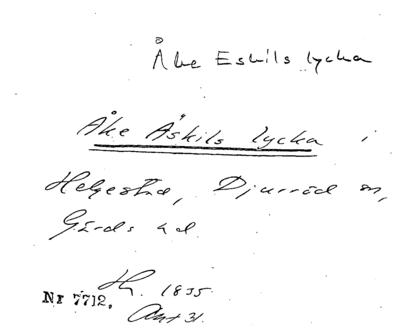 Åke Eskils lycka
Åke Åskils lycka i
Helgestad, Djurröd sn,
Gärds hd.
H. 1835
Nr 7712.
Akt 31.